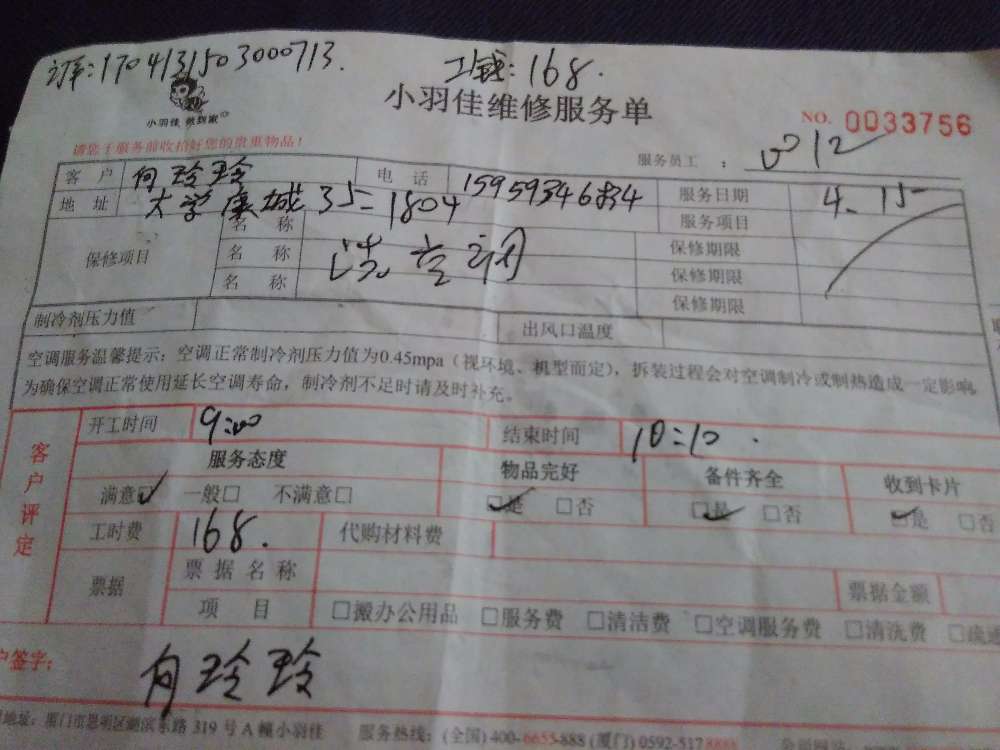 订单:1704131503000713.
工钱:168.
小羽佳 做到家
小羽佳维修服务单
NO. 0033756
请您于服务前收拾好您的贵重物品!
服务员工 : 012
客 户 向玲玲 电 话 服务日期 4.15
地 址 大学康城35-1804 15959346834 服务项目
保修项目 名 称 保修期限
名 称 洗空调 保修期限
名 称 保修期限
制冷剂压力值 出风口温度
空调服务温馨提示:空调正常制冷剂压力值为0.45mpa(视环境、机型而定),拆装过程会对空调制冷或制热造成一定影响
为确保空调正常使用延长空调寿命,制冷剂不足时请及时补充。
客户评定
开工时间 9:00 结束时间 10:10.
服务态度 物品完好 备件齐全 收到卡片
满意☑ 一般□ 不满意□ ☑是 □否 ☑是 □否 ☑是 □否
工时费 168. 代购材料费
票据 票据名称 票据金额
项 目 □搬办公用品 □服务费 □清洁费 □空调服务费 □清洗费
户签字: 向玲玲
地址:厦门市思明区湖滨东路 319 号 A 幢小羽佳 服务热线:(全国)400-6655-888 (厦门) 0592-5178888